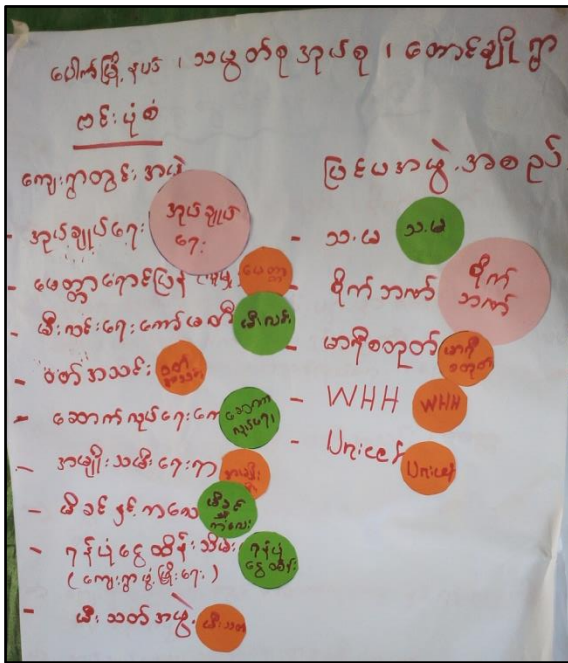 ပေါက်မြို့နယ် ၊ သမွတ်စုအုပ်စု ၊ တောင်ချိုရွာ
ဗင်းပုံစံ
ကျေးရွာတွင်း အဖွဲ့
- အုပ်ချုပ်ရေး အုပ်ချုပ်ရေး
- မေတ္တာရောင်ပြန် မေတ္တာ
- မီးလင်းရေးကော်မတီ မီးလင်း
- ဝတ်အသင်း ဝတ်အသင်း
- ဆောက်လုပ်ရေးကော် ဆောက်လုပ်ရေး
- အမျိုးသမီးရေးရာ အမျိုး
- မိခင်နှင့်ကလေး မိခင်နှင့်ကလေး
- ရန်ပုံငွေထိန်းသိမ်း ရန်ပုံငွေထိန်း
(ကျေးရွာဖွံ့ဖြိုးရေး)
- မီးသတ်အဖွဲ့ မီးသတ်
ပြင်ပအဖွဲ့အစည်း
- သ.မ သ.မ
- စိုက်ဘဏ် စိုက်ဘဏ်
- မာရီစတုတ် မာရီစတုတ်
- WHH WHH
- Unicef Unicef